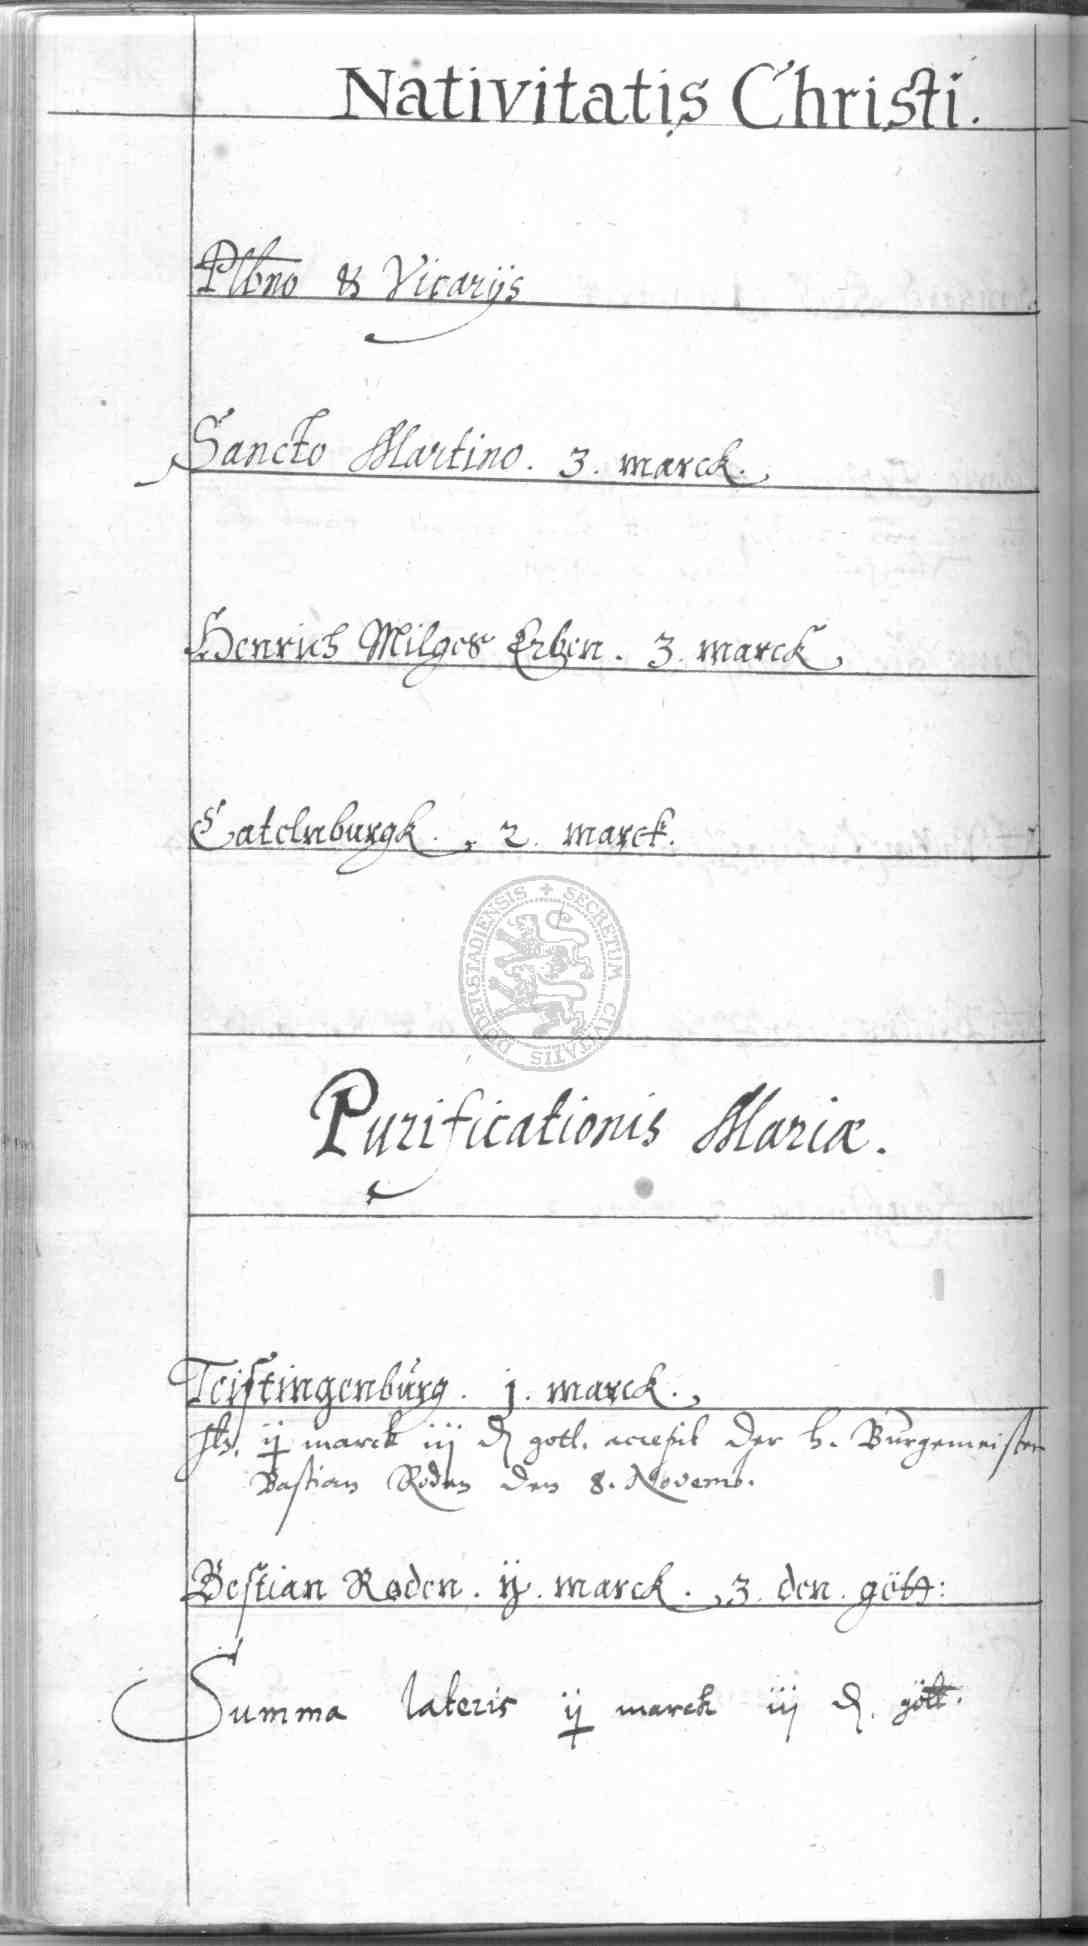 Nativitatis Christi.
Plbno & Vicarijs
Sancto Martino. 3. marck.
Henrich Milges Erben. 3. marck
Catelnburgk. 2. marck.
SECRETUM CIVITATIS DUDERSTADIENSIS
Purificationis Mariæ.
Teistingenburg. j. marck.
ij marck iij d gott. accepit der h. Burgemeister
Bastian Roden den 8. Novemb.
Bestian Roden. ij. marck. 3. den. gött:
Summa lateris ij marck iij d. gött.